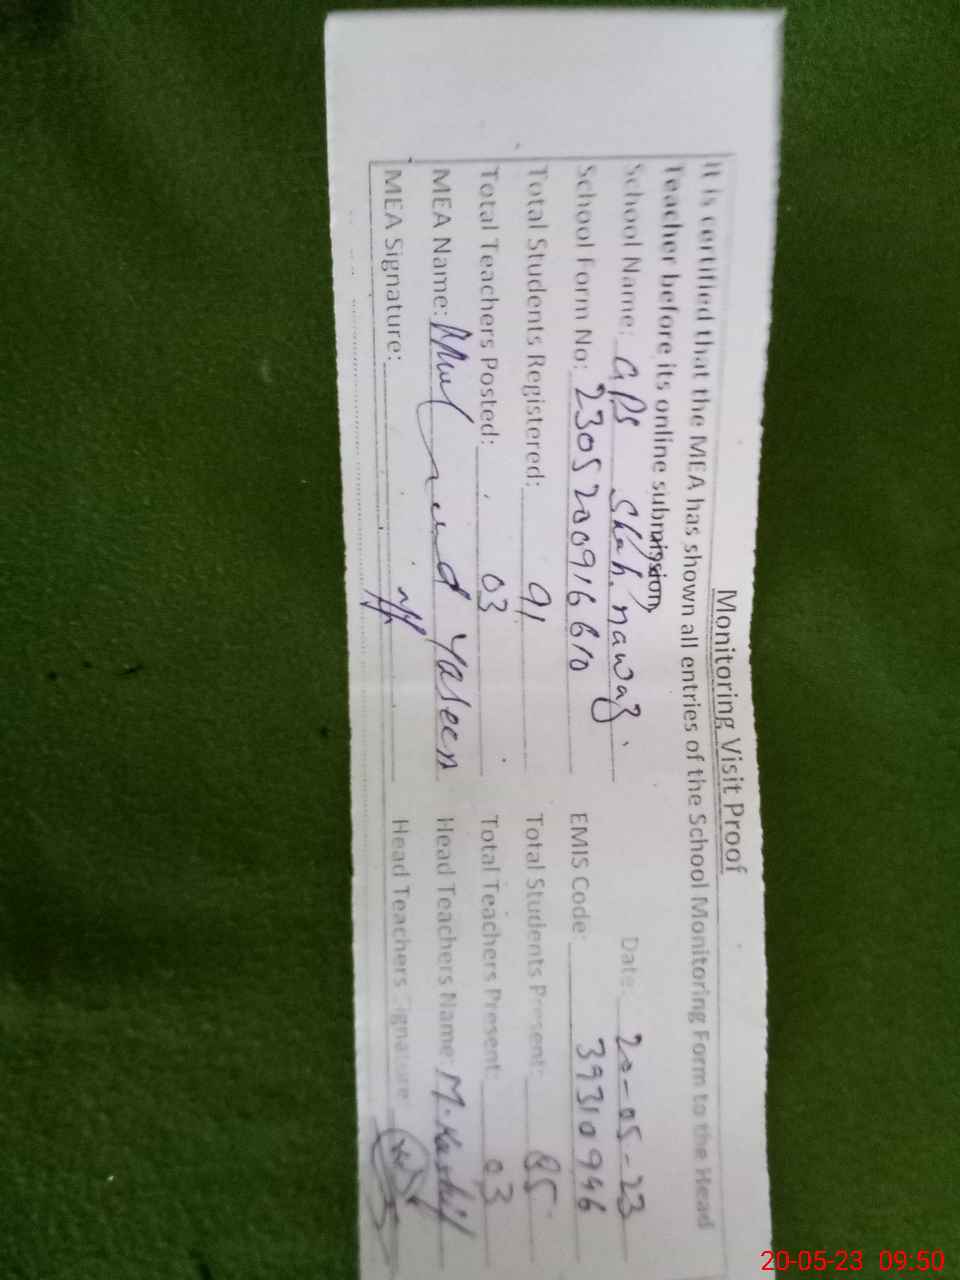 Monitoring Visit Proof
It is certified that the MEA has shown all entries of the School Monitoring Form to the Head
Teacher before its online submission
Date: 20-05-23
School Name: GPS Shah nawaz
School Form No: 2305200916610 EMIS Code: 39310946
Total Students Registered: 91 Total Students Present: 85
Total Teachers Posted: 03 Total Teachers Present: 03
MEA Name: Yaseen Head Teachers Name: M. Kashif
MEA Signature: Head Teachers Signature:
20-05-23 09:50